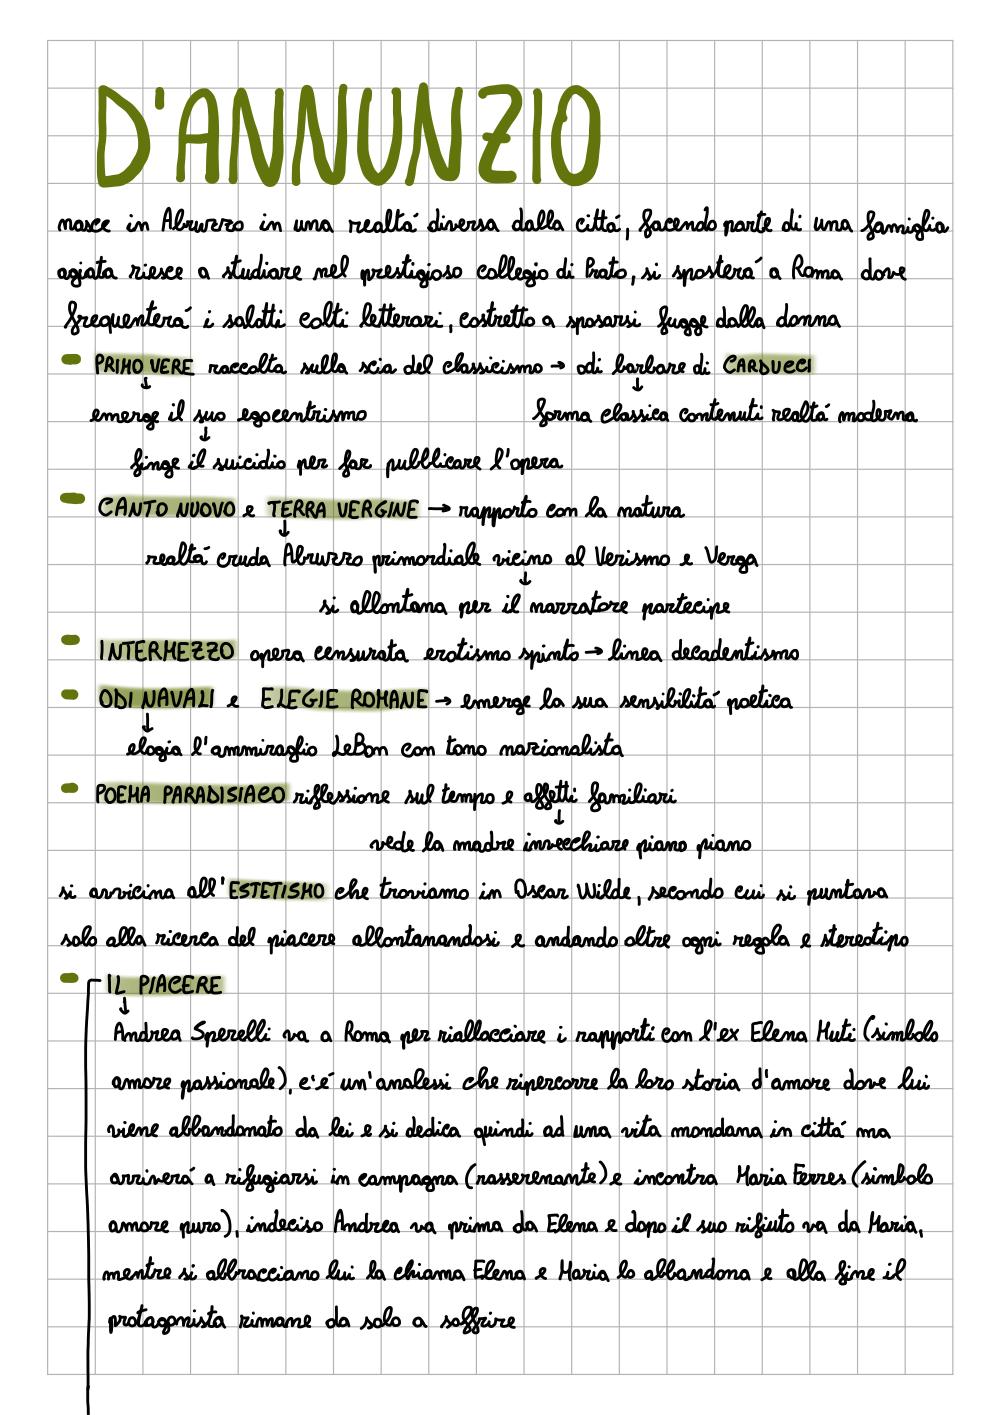 D'ANNUNZIO
nasce in Abruzzo in una realtá diversa dalla cittá, facendo parte di una famiglia
agiata riesce a studiare nel prestigioso collegio di Prato, si sposterá a Roma dove
frequenterá i salotti colti letterari, costretto a sposarsi fugge dalla donna
- PRIMO VERE raccolta sulla scia del classicismo → odi barbare di CARDUCCI
↓ ↓
emerge il suo egocentrismo forma classica contenuti realtá moderna
↓
finge il suicidio per far pubblicare l'opera
- CANTO NUOVO e TERRA VERGINE → rapporto con la natura
↓
realtá cruda Abruzzo primordiale vicino al Verismo e Verga
↓
si allontana per il narratore partecipe
- INTERMEZZO opera censurata erotismo spinto → linea decadentismo
- ODI NAVALI e ELEGIE ROMANE → emerge la sua sensibilitá poetica
↓
elogia l'ammiraglio LeBon con tono nazionalista
- POEMA PARADISIACO riflessione sul tempo e affetti familiari
↓
vede la madre invecchiare piano piano
si avvicina all'ESTETISMO che troviamo in Oscar Wilde, secondo cui si puntava
solo alla ricerca del piacere allontanandosi e andando oltre ogni regola e stereotipo
- IL PIACERE
↓
Andrea Sperelli va a Roma per riallacciare i rapporti con l'ex Elena Muti (simbolo
amore passionale), c'é un'analessi che ripercorre la loro storia d'amore dove lui
viene abbandonato da lei e si dedica quindi ad una vita mondana in cittá ma
arriverá a rifugiarsi in campagna (rasserenante) e incontra Maria Ferres (simbolo
amore puro), indeciso Andrea va prima da Elena e dopo il suo rifiuto va da Maria,
mentre si abbracciano lui la chiama Elena e Maria lo abbandona e alla fine il
protagonista rimane da solo a soffrire